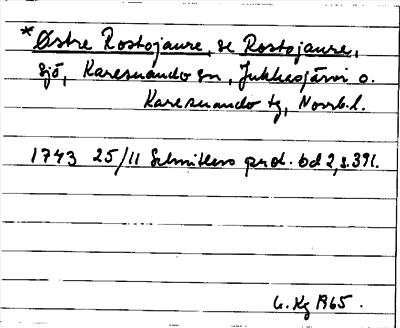 *Østre Rostojaure, se Rostojaure,
sjö, Karesuando sn, Jukkasjärvi o.
Karesuando tg, Norrb. l.
1743 25/11 Schnitlers prot. bd 2, s. 391.
G. Kg 1965.